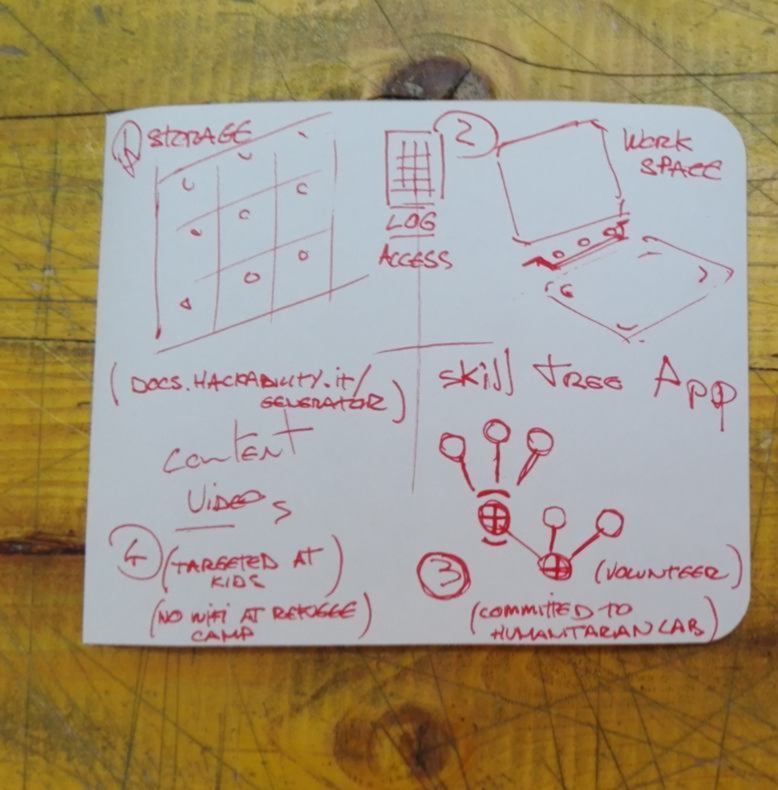 1 STORAGE
LOG
ACCESS
2
WORK
SPACE
(DOCS.HACKABILITY.it/
GENERATOR)
Skill TREE App
CONTENT
VIDEOS
4 (TARGETED AT
KIDS)
(NO WIFI AT REFUGEE
CAMP)
3
(VOLUNTEER)
(COMMITTED TO
HUMANITARIAN LAB)